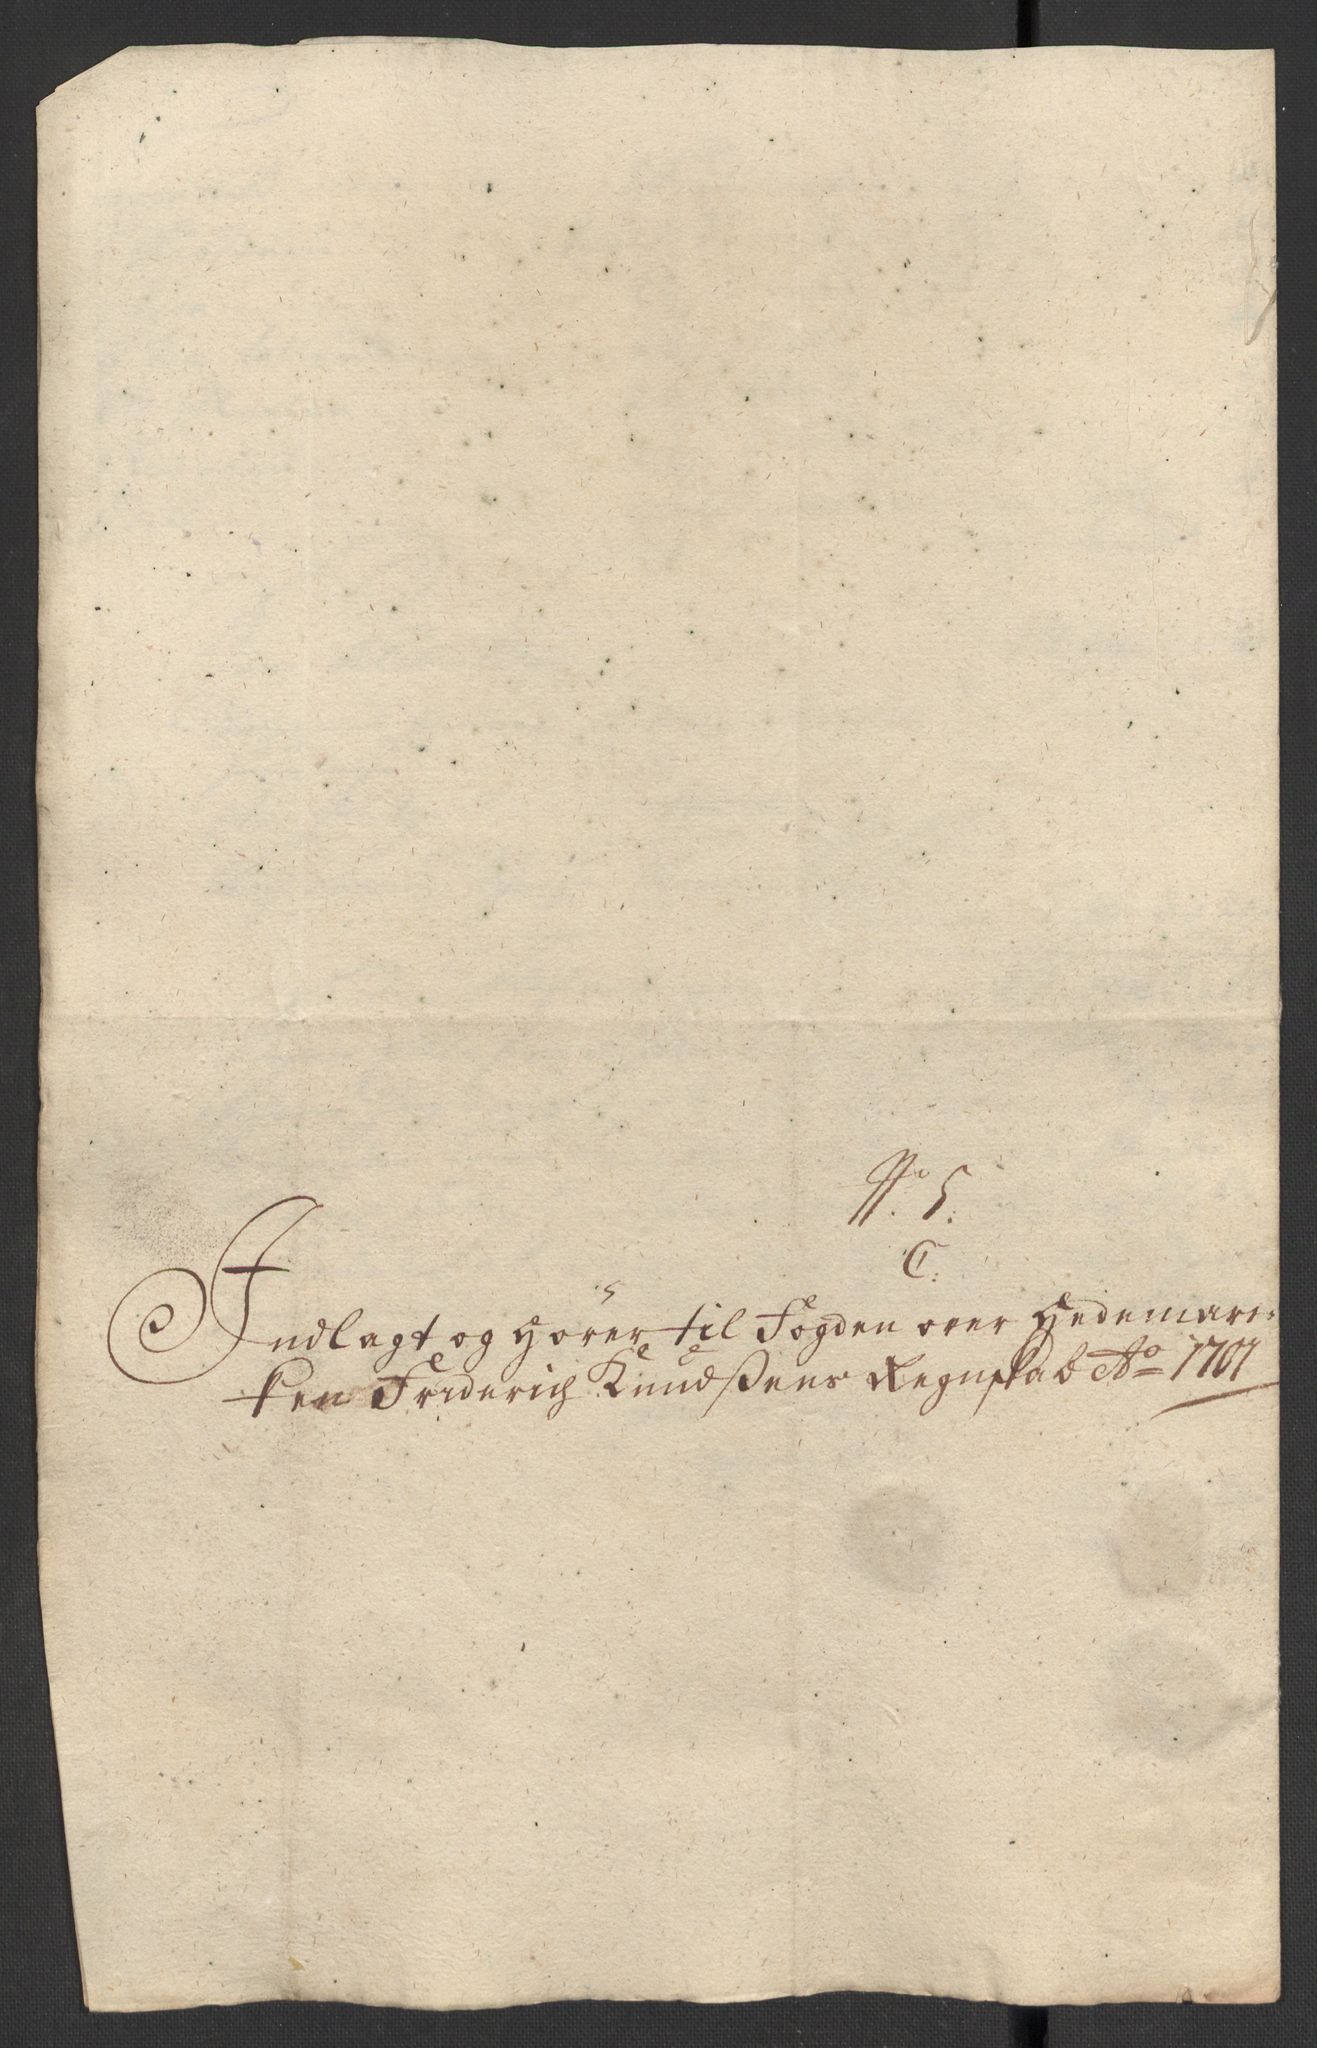 No. 5.
C:
Indlagt og hører til Fogden over Hedemare:
ken Friderich Knudßens Regnskab Ao 1701